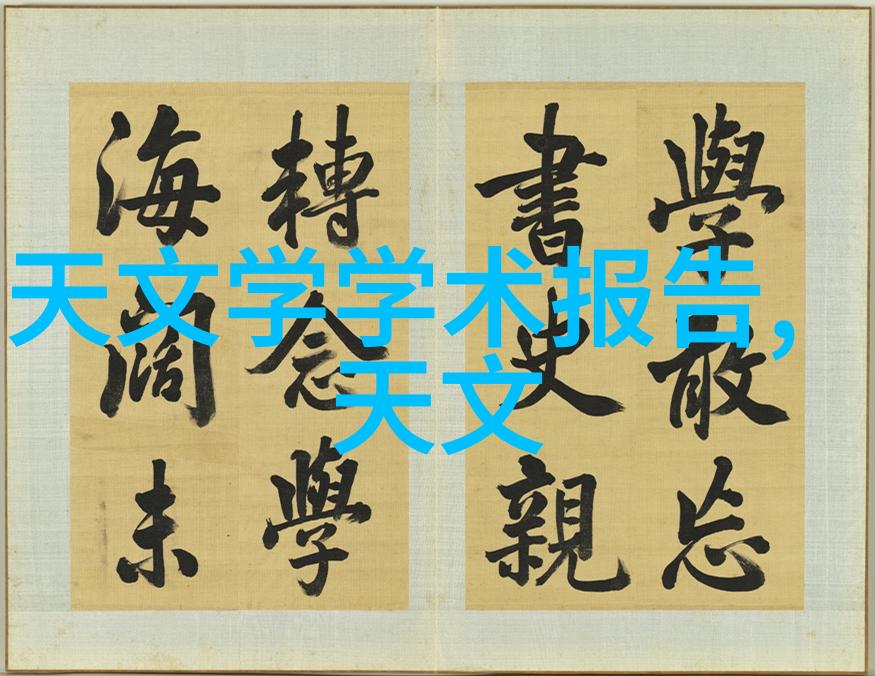 天文学学术报告,
天文
學敢忘
書史親
轉念學
海闊未